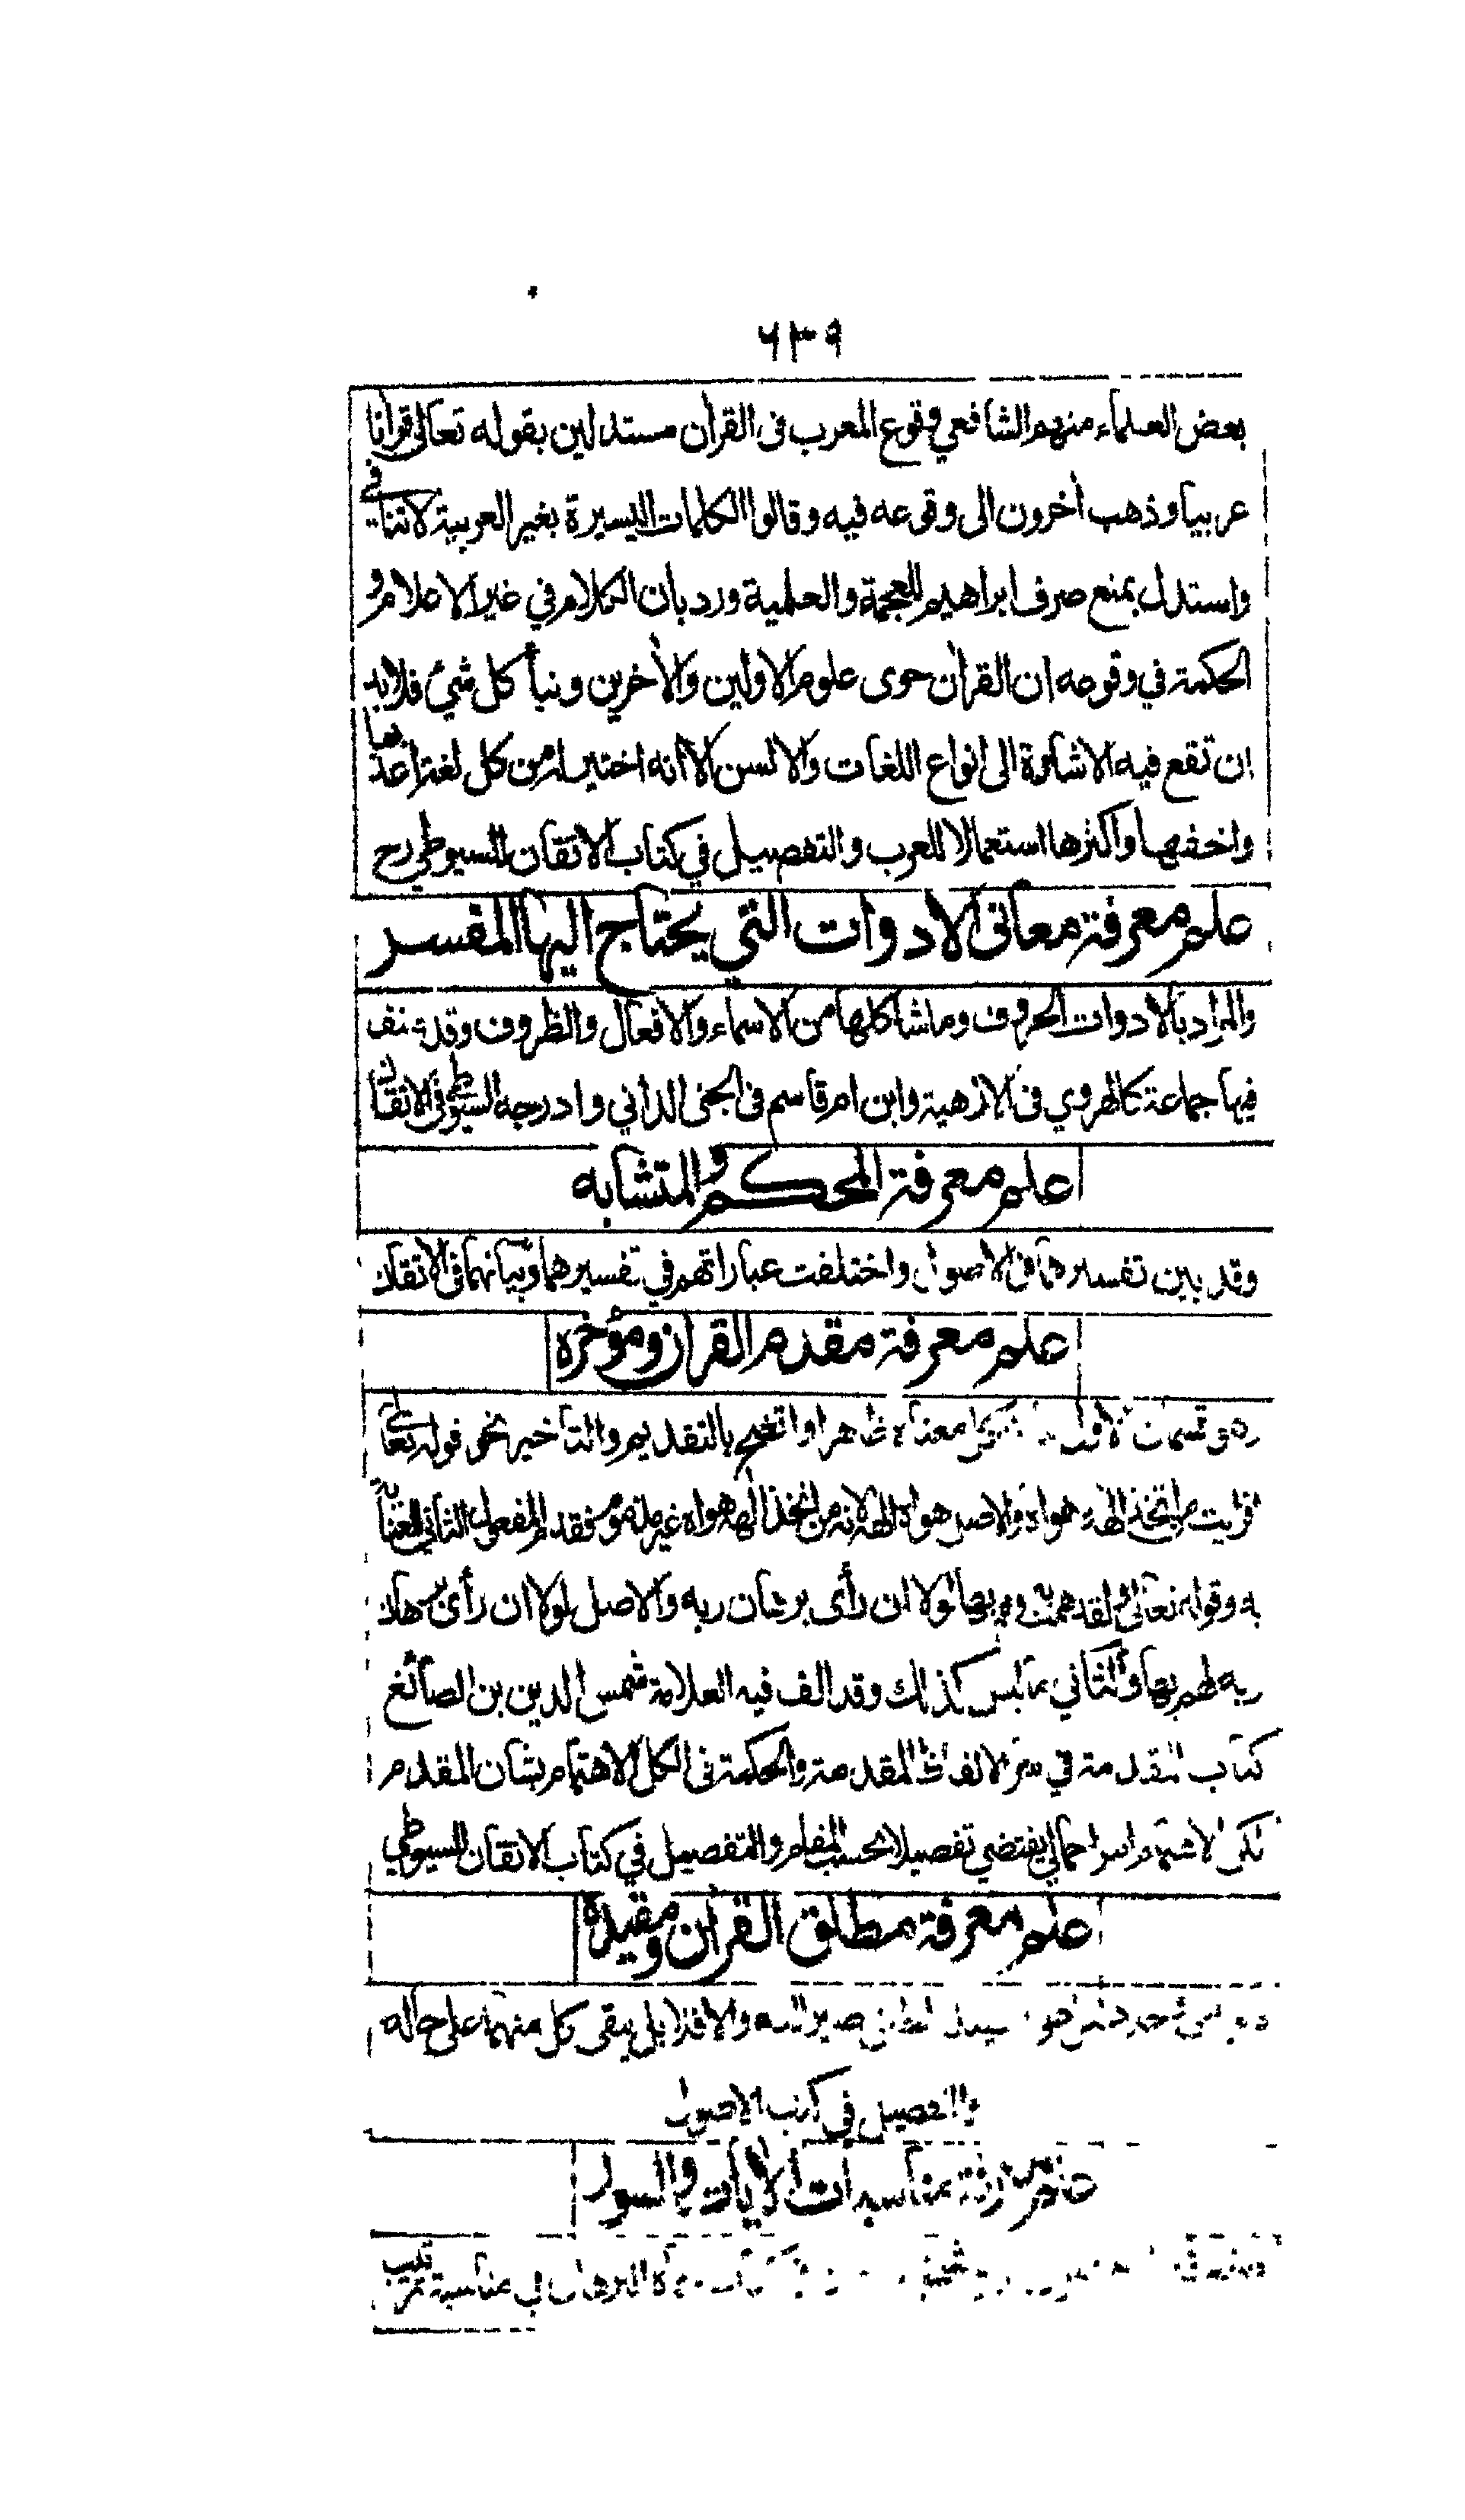 ٦٣٩
بعض العلماء منهم الشافعي وقوع المعرب فى القرآن مستدلين بقوله تعالى قرآنا
عربيا وذهب آخرون الى وقوعه فيه وقالوا الكلمات اليسيرة بغير العربية لا تنافي
واستدل بمنع صرف ابراهيم للعجمة والعلمية ورد بان الكلام في غير الاعلام و
الحكمة في وقوعه ان القرآن حوى علوم الاولين والآخرين ونبأ كل شئ فلا بد
ان تقع فيه الاشارة الى انواع اللغات والالسن الا انه اختير له من كل لغة اعذبها
واخفها واكثرها استعمالا للعرب والتفصيل في كتاب الاتقان للسيوطي رح
علم معرفة معانى الادوات التي يحتاج اليها المفسر
والمراد بالادوات الحروف وما شاكلها من الاسماء والافعال والظروف وقد صنف
فيها جماعة كالهروي فى الازهية وابن ام قاسم فى الجنى الداني وادرجه السيوطي فى الاتقان
علم معرفة المحكم والمتشابه
وقد بين تفسيرهما فى الاصول واختلفت عباراتهم في تفسيرهما وبيانهما فى الاتقان
علم معرفة مقدم القرآن ومؤخره
وهو قسمان الاول ما معناه ظاهرا واتضح بالتقديم والتأخير نحو قوله تعالى
افرأيت من اتخذ الهه هواه والاصل هواه الهه لانه من اتخذ الهه هواه غير مذموم فقدم المفعول الثاني للعناية
به وقوله تعالى ولقد همت به وهم بها لولا ان رأى برهان ربه والاصل لولا ان رأى برهان
ربه لهم بها والثاني ما ليس كذلك وقد الف فيه العلامة شمس الدين بن الصائغ
كتاب المقدمة في سر الالفاظ المقدمة والحكمة فى الكل الاهتمام بشان المقدم
لكن الاهتمام امر اجمالي يقتضي تفصيلا بحسب المقام والتفصيل في كتاب الاتقان للسيوطي
علم معرفة مطلق القرآن ومقيده
المطلق صير اليه والا فلا بل يبقى كل منهما على حاله
والتفصيل في كتب الاصول
علم معرفة مناسبات الآيات والسور
البرهان في مناسبة ترتيب